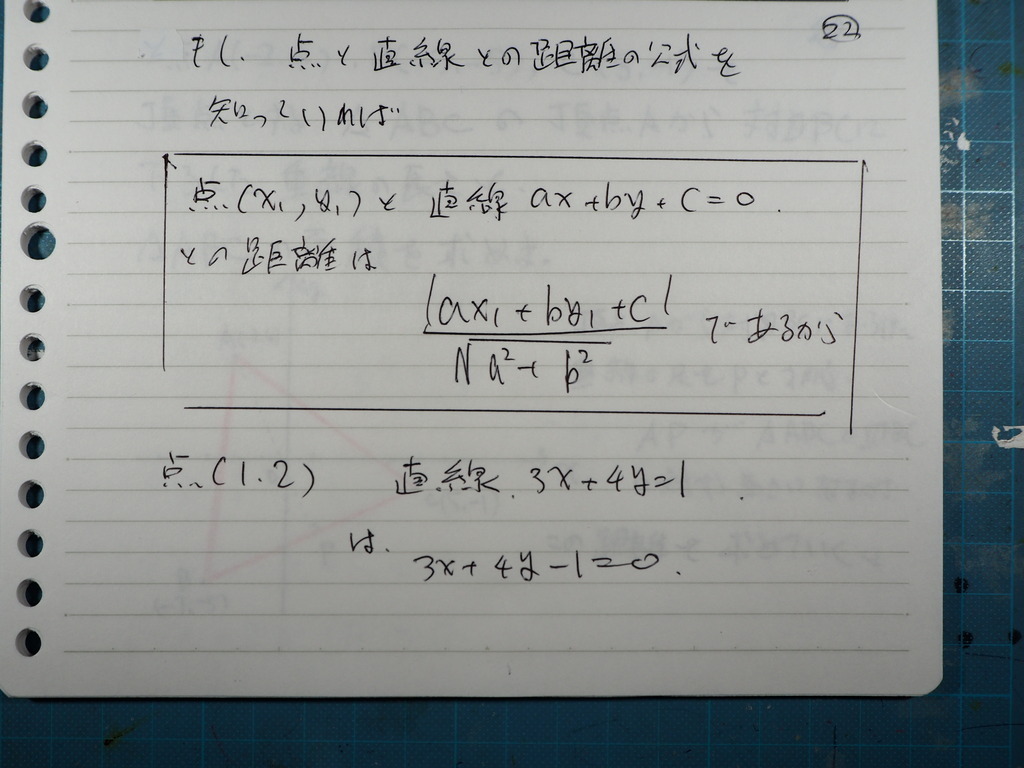 22
もし、点と直線との距離の公式を
知っていれば
点(x₁, y₁)と 直線 ax+by+c=0.
との距離は
|ax₁+by₁+c| / √a²+b² であるから
点(1.2) 直線. 3x+4y=1
は.
3x+4y-1=0.